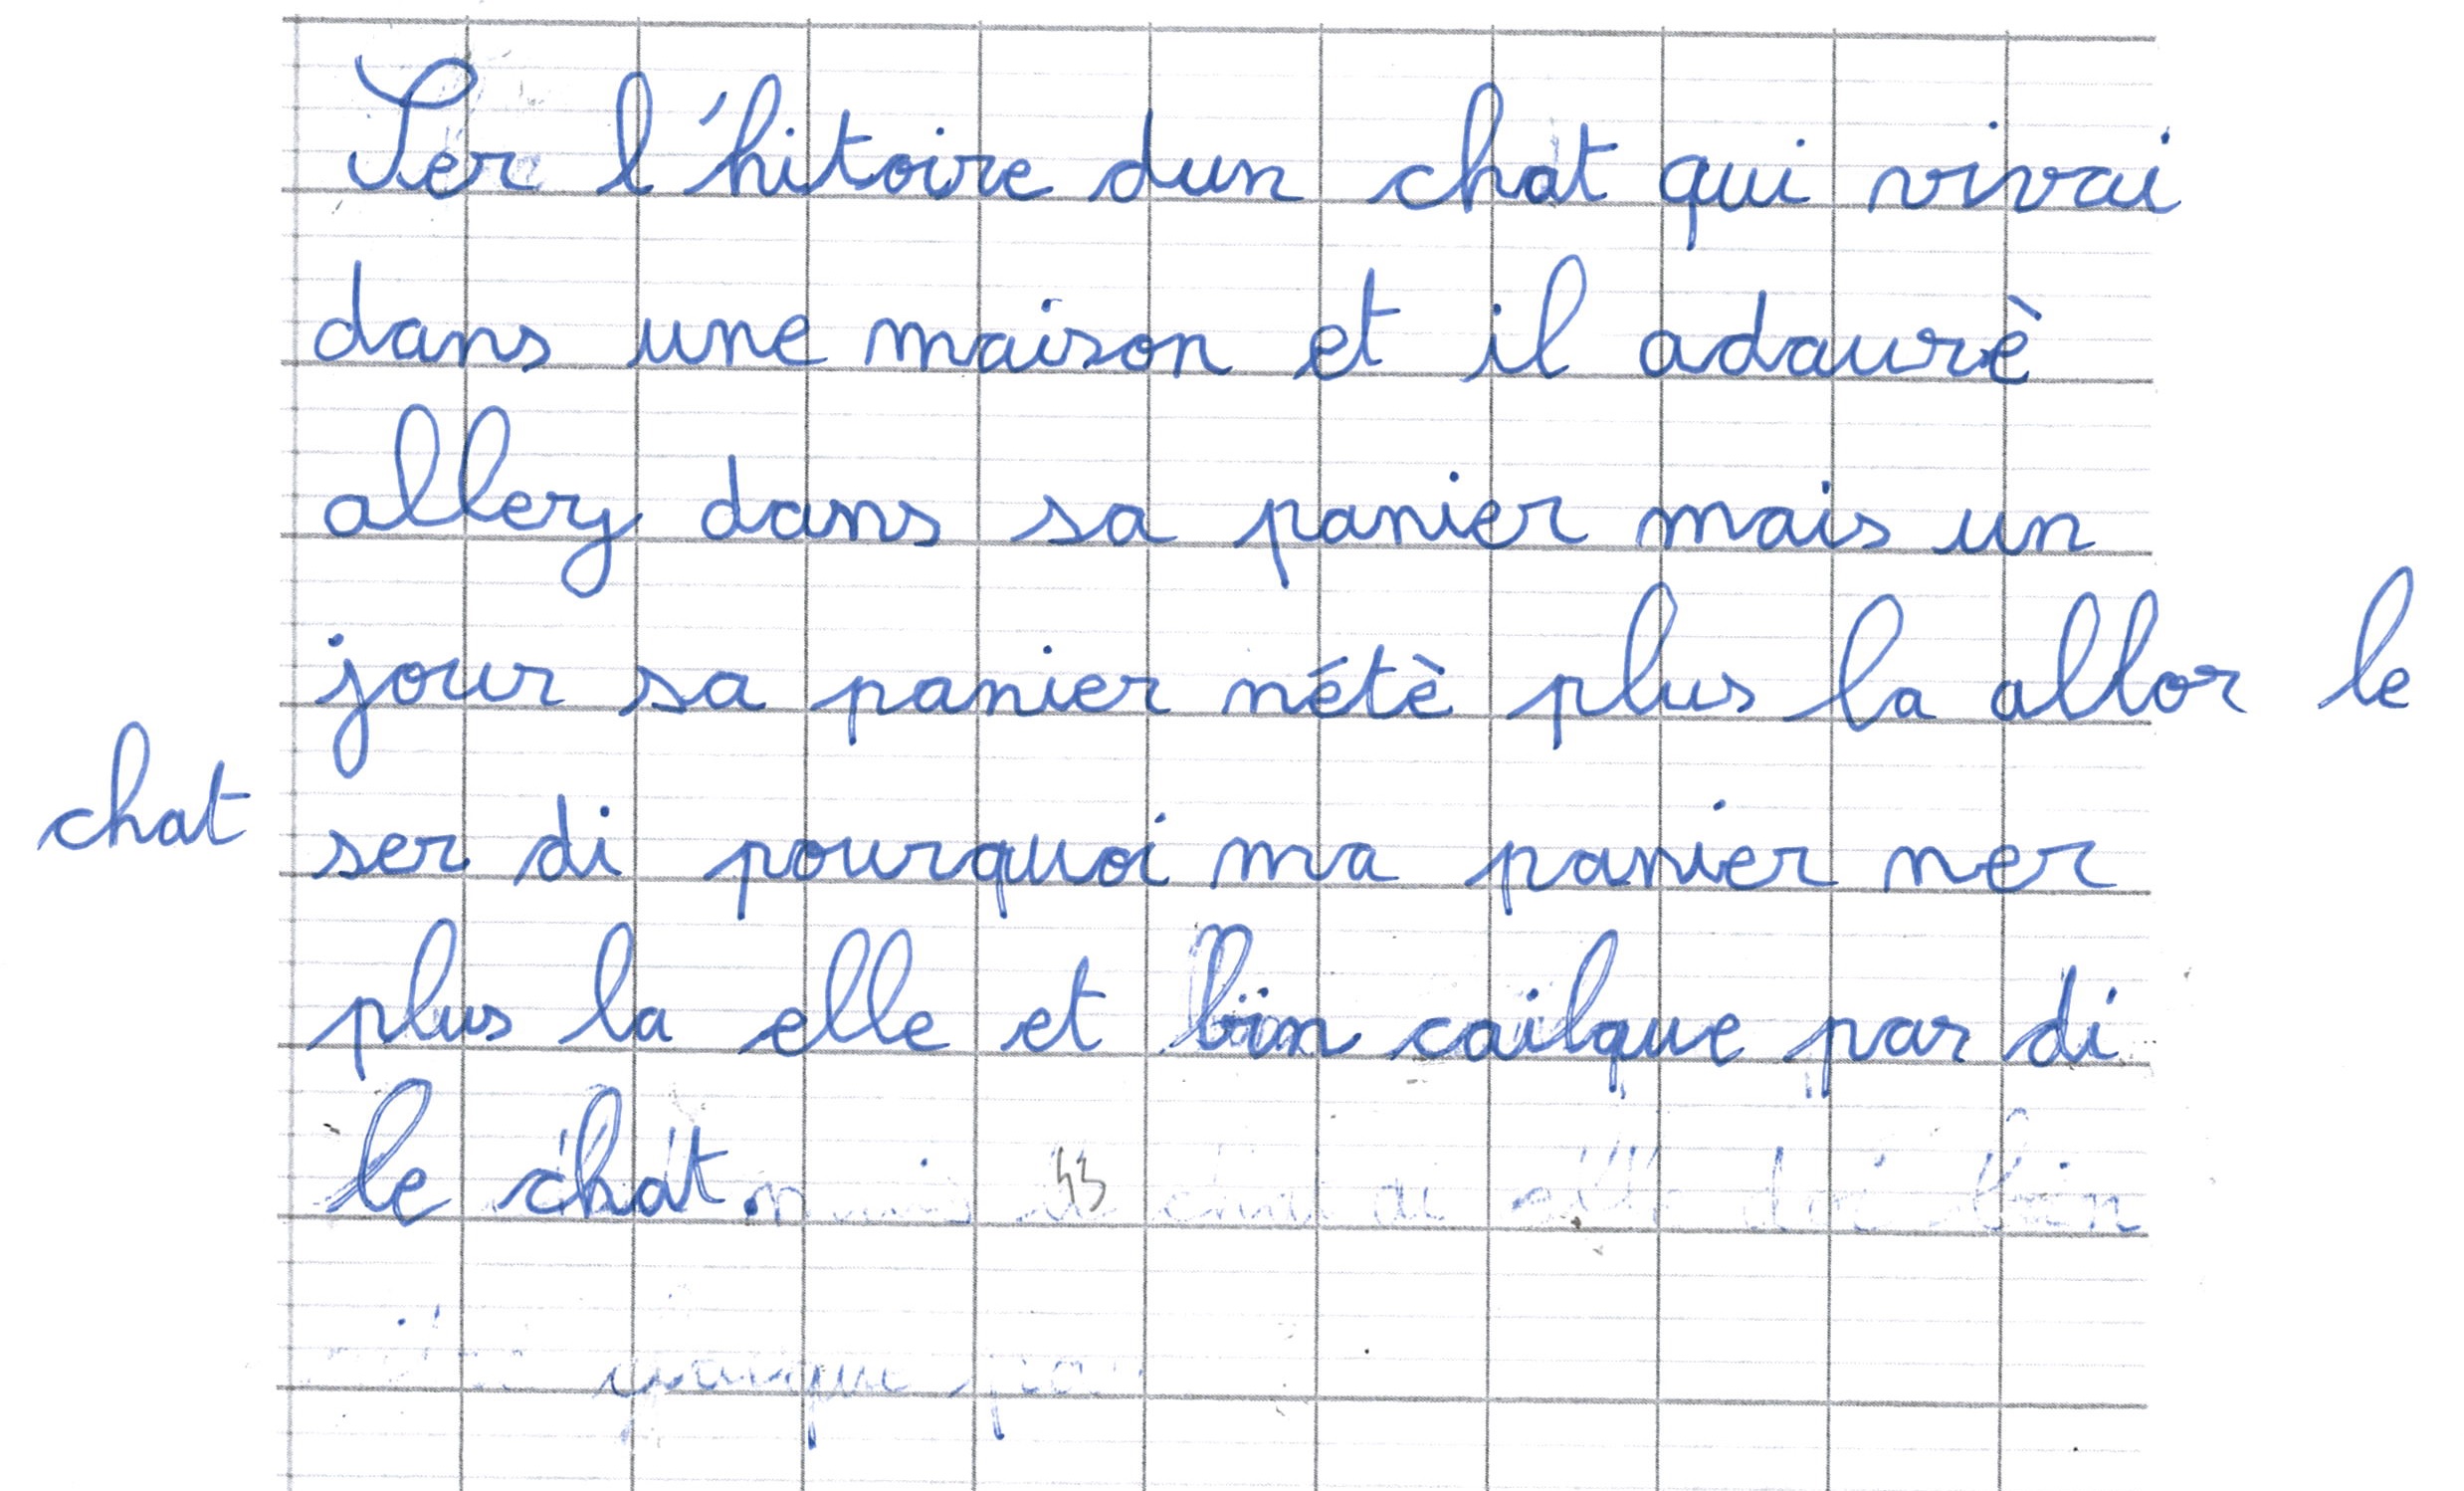 Ser l'hitoire dun chat qui vivai
dans une maison et il adaurè
allery dans sa panier mais un
jour sa panier nétè plus la allor le
chat ser di pourquoi ma panier ner
plus la elle et bin cailque par di
le chat.